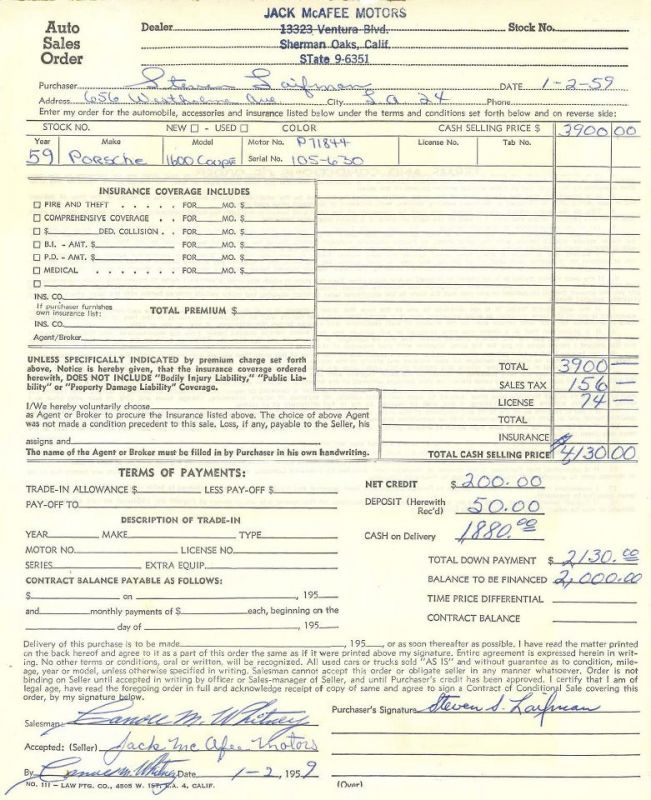 JACK McAFEE MOTORS
13323 Ventura Blvd.
Sherman Oaks, Calif.
STate 9-6351
Auto Sales Order
Dealer
Stock No.
Purchaser Steven Laifman DATE 1-2-59
Address 656 Westholme Ave City L.A. 24 Phone
Enter my order for the automobile, accessories and insurance listed below under the terms and conditions set forth below and on reverse side:
STOCK NO. NEW □ - USED □ COLOR CASH SELLING PRICE $ 3900 00
Year Make Model Motor No. P71844 License No. Tab No.
59 PORSCHE 1600 Coupe Serial No. 105-630
INSURANCE COVERAGE INCLUDES
□ FIRE AND THEFT . . . . . FOR MO. $
□ COMPREHENSIVE COVERAGE . . FOR MO. $
□ $ DED. COLLISION . . FOR MO. $
□ B.I. - AMT. $ FOR MO. $
□ P.D. - AMT. $ FOR MO. $
□ MEDICAL . . . . . . . FOR MO. $
□
INS. CO.
If purchaser furnishes own insurance list: TOTAL PREMIUM $
INS. CO.
Agent/Broker
UNLESS SPECIFICALLY INDICATED by premium charge set forth
above, Notice is hereby given, that the insurance coverage ordered
herewith, DOES NOT INCLUDE "Bodily Injury Liability," "Public Lia-
bility" or "Property Damage Liability" Coverage.
I/We hereby voluntarily choose
as Agent or Broker to procure the Insurance listed above. The choice of above Agent
was not made a condition precedent to this sale. Loss, if any, payable to the Seller, his
assigns and
The name of the Agent or Broker must be filled in by Purchaser in his own handwriting.
TOTAL 3900 —
SALES TAX 156 —
LICENSE 74 —
TOTAL
INSURANCE
TOTAL CASH SELLING PRICE $4130 00
TERMS OF PAYMENTS:
TRADE-IN ALLOWANCE $ LESS PAY-OFF $
PAY-OFF TO
DESCRIPTION OF TRADE-IN
YEAR MAKE TYPE
MOTOR NO. LICENSE NO.
SERIES EXTRA EQUIP.
CONTRACT BALANCE PAYABLE AS FOLLOWS:
$ on , 195
and monthly payments of $ each, beginning on the
day of , 195
NET CREDIT $ 200.00
DEPOSIT (Herewith Rec'd) 50.00
CASH on Delivery 1880.00
TOTAL DOWN PAYMENT $ 2130.00
BALANCE TO BE FINANCED 2,000.00
TIME PRICE DIFFERENTIAL
CONTRACT BALANCE
Delivery of this purchase is to be made , 195 , or as soon thereafter as possible. I have read the matter printed
on the back hereof and agree to it as a part of this order the same as if it were printed above my signature. Entire agreement is expressed herein in writ-
ing. No other terms or conditions, oral or written, will be recognized. All used cars or trucks sold "AS IS" and without guarantee as to condition, mile-
age, year or model, unless otherwise specified in writing. Salesman cannot accept this order or obligate seller in any manner whatsoever. Order is not
binding on Seller until accepted in writing by officer or Sales-manager of Seller, and until Purchaser's credit has been approved. I certify that I am of
legal age, have read the foregoing order in full and acknowledge receipt of copy of same and agree to sign a Contract of Conditional Sale covering this
order, by my signature below.
Salesman Canole M. Whitney
Purchaser's Signature Steven S. Laifman
Accepted: (Seller) Jack Mc Afee Motors
By Canole M. Whitney Date 1-2, 1959
NO. 111 - LAW PTG. CO., 4805 W. 1ST, L.A. 4, CALIF.
(Over)